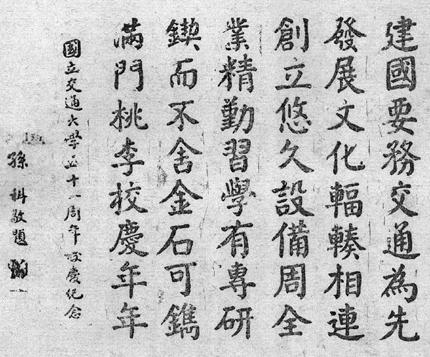 建國要務交通為先
發展文化輻輳相連
創立悠久設備周全
業精勤習學有專研
鍥而不舍金石可鐫
滿門桃李校慶年年
國立交通大學五十一周年校慶紀念
孫科敬題